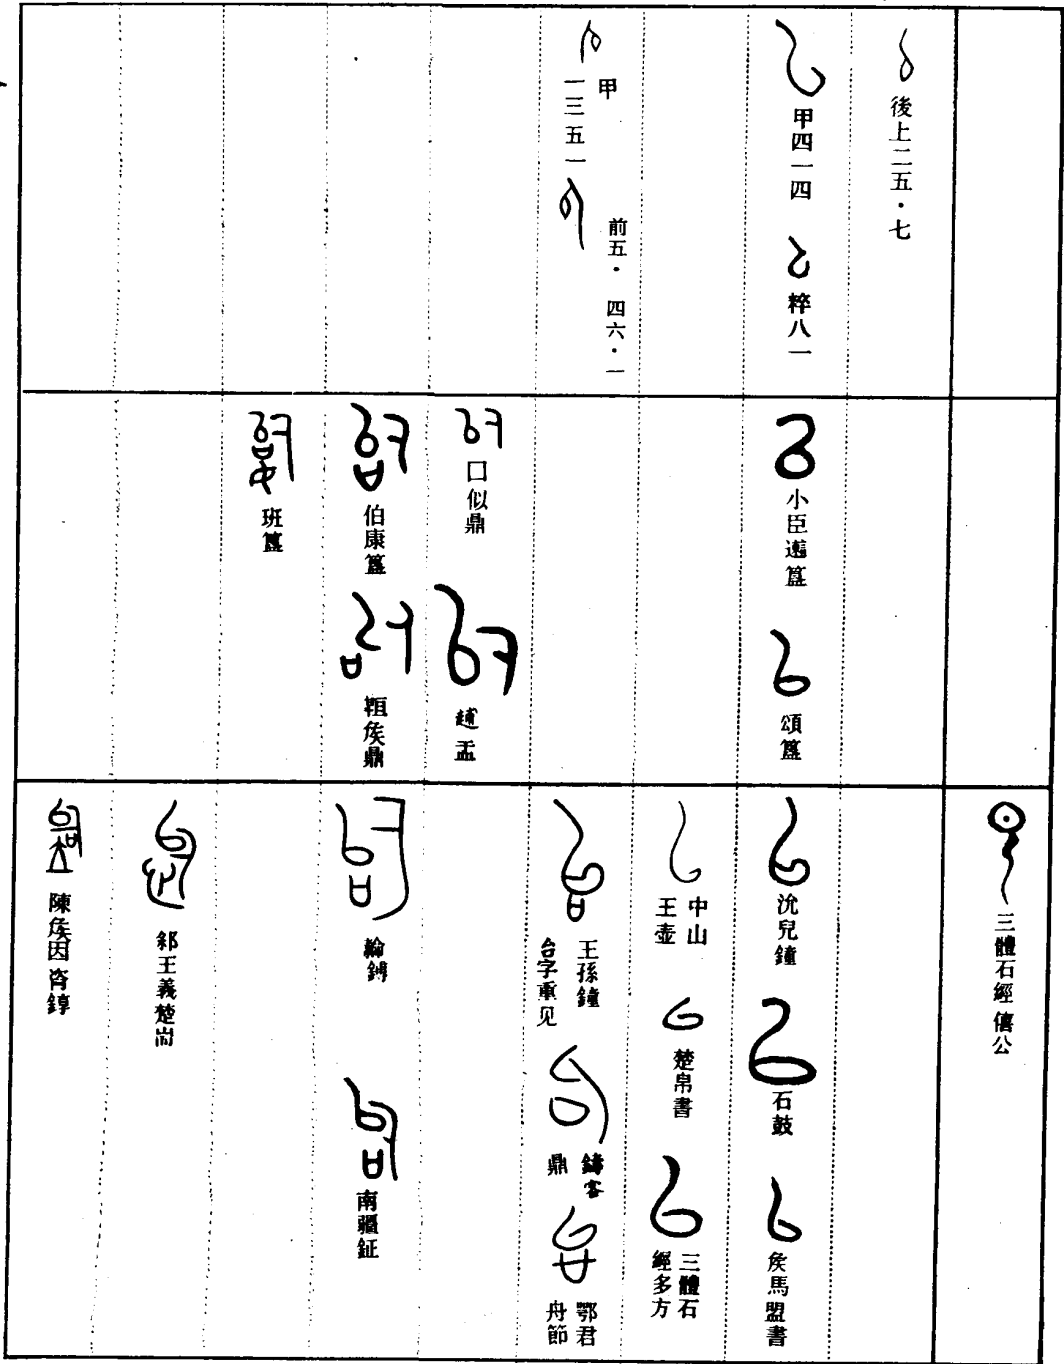 後上二五・七
甲四一四
粹八一
甲
一三五一
前五・四六・一
小臣簋
頌簋
口似鼎
盂
伯康簋
矦鼎
班簋
三體石經僖公
沇兒鐘
石鼓
矦馬盟書
中山
王壺
楚帛書
三體石
經多方
王孫鐘
台字重见
鑄客
鼎
鄂君
舟節
鎛
南疆鉦
郐王義楚耑
陳矦因咨錞